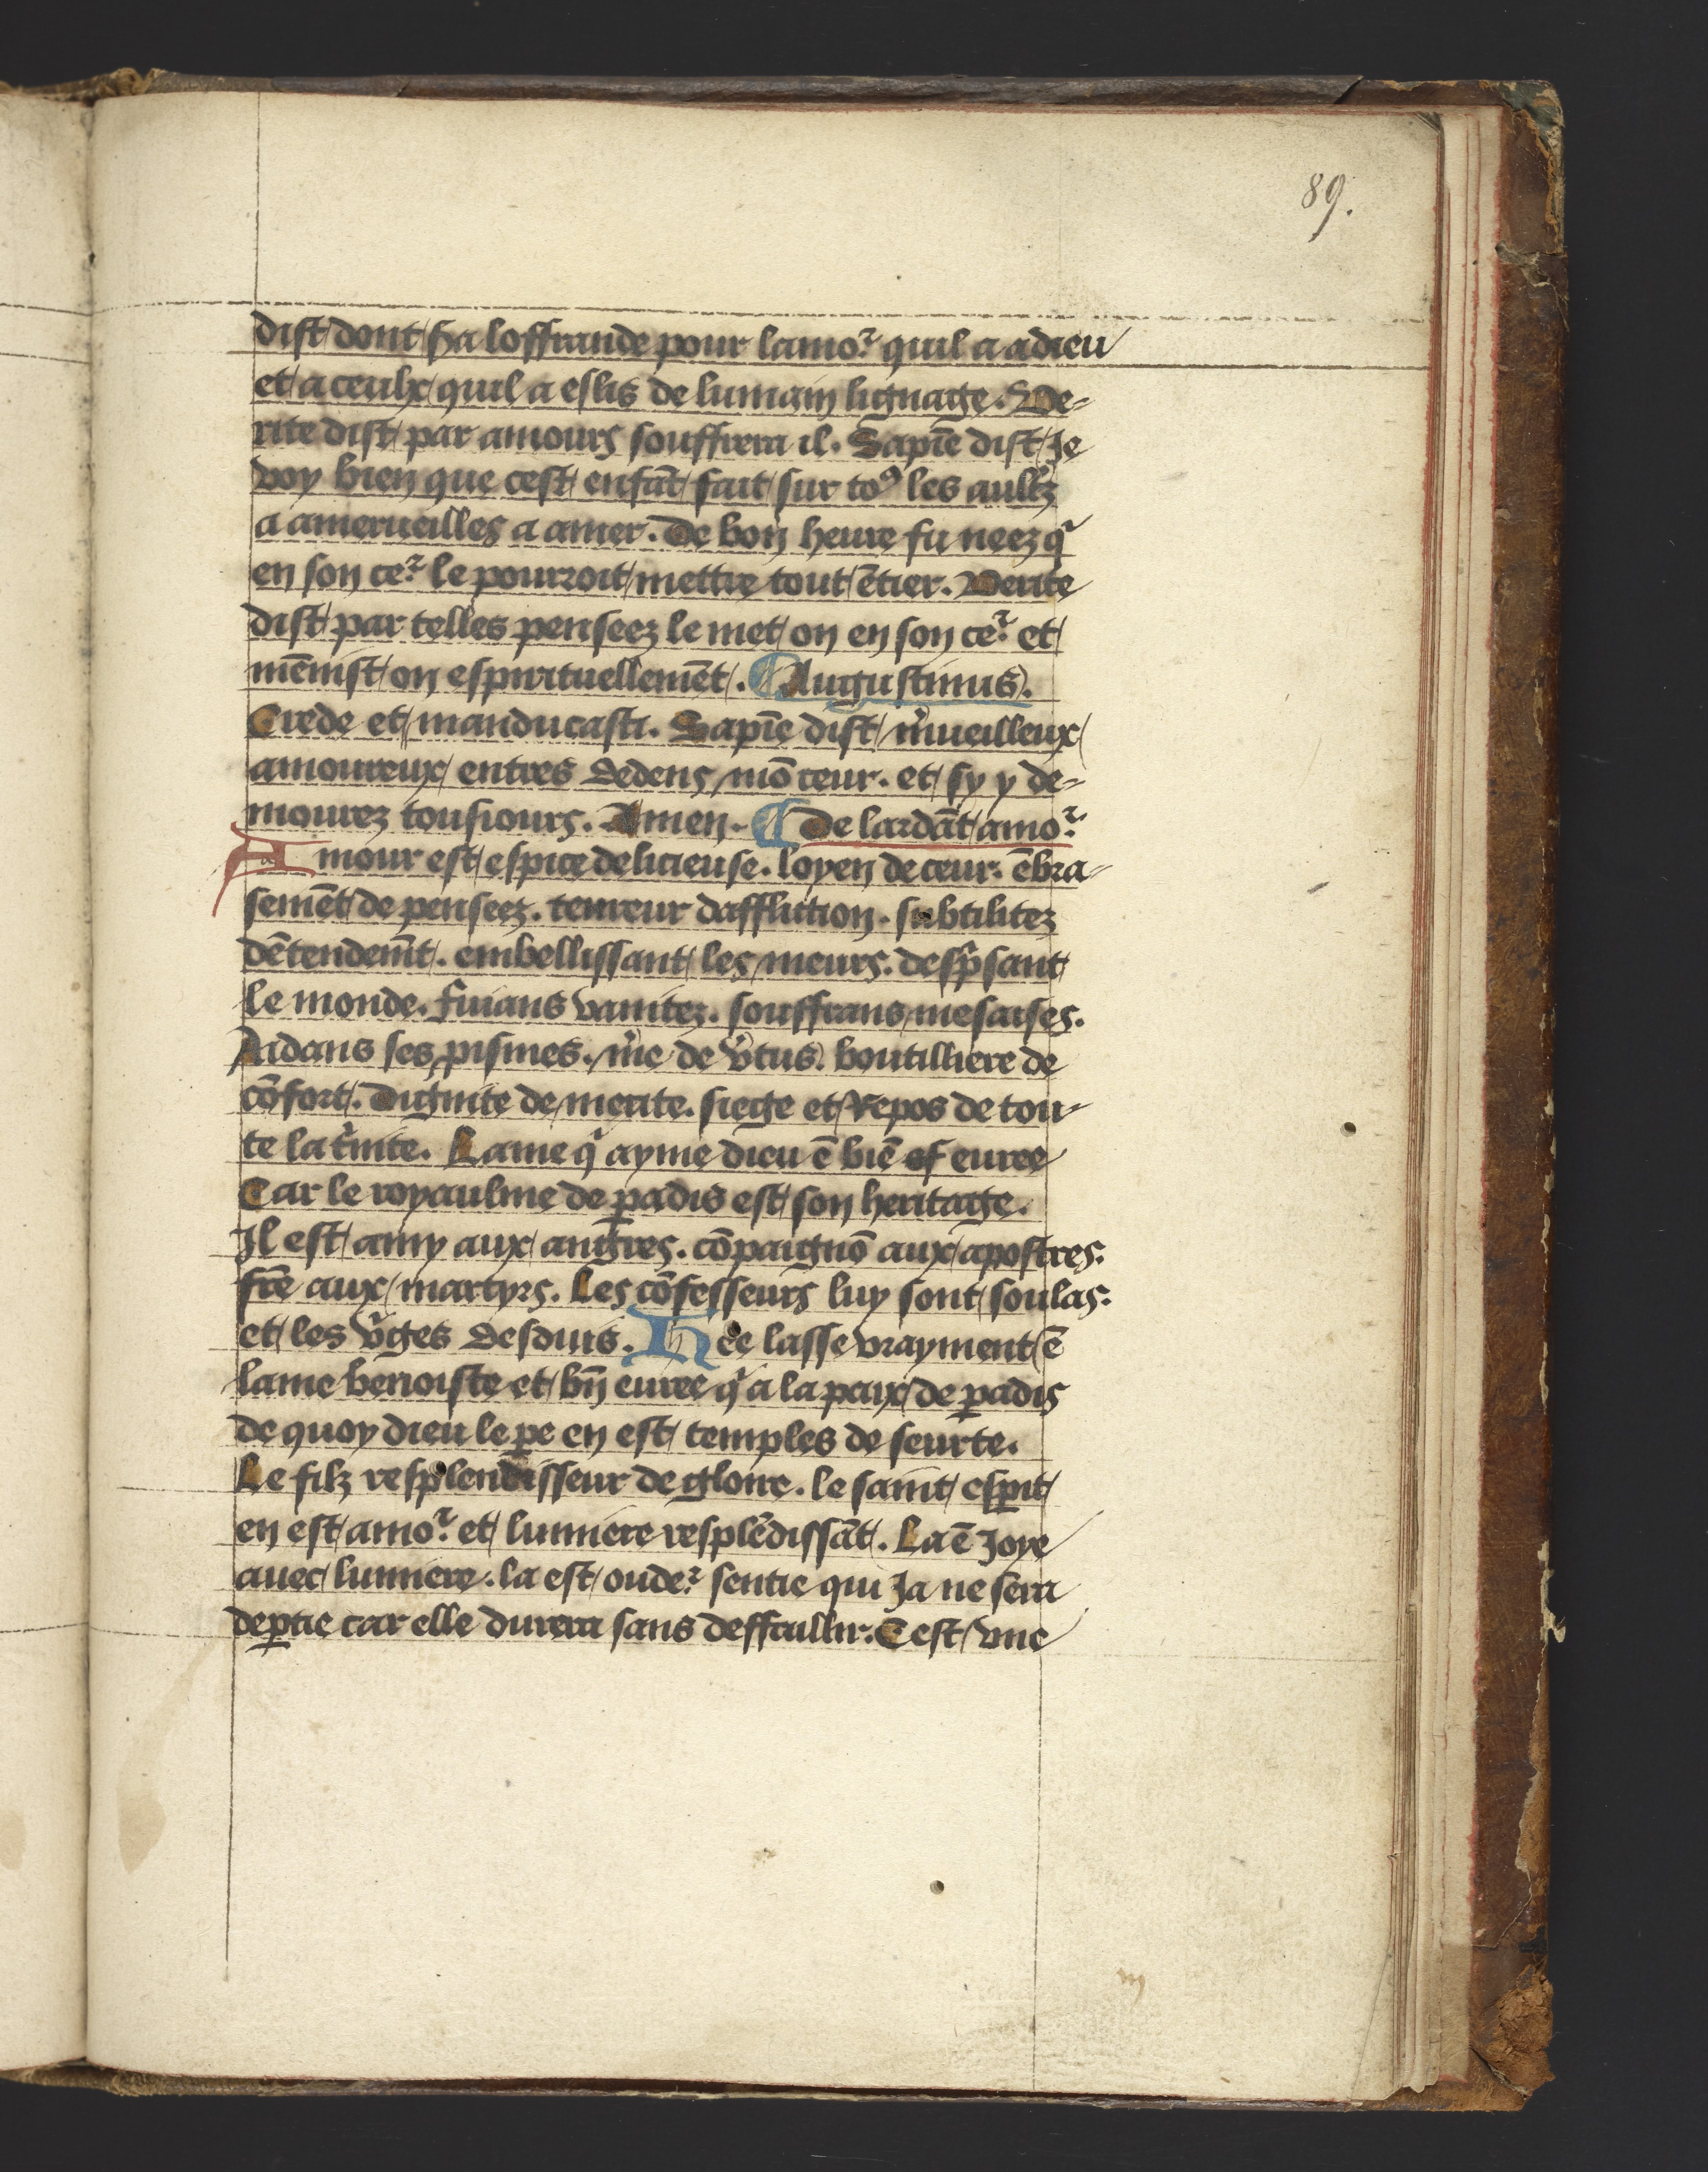 89.
dist dont fra loffrande pour lamo᷑ quil a a dieu
et a ceulx quil a eslis de lumain lignage. Ve-
rite dist par amours souffrera il. Sapiē dist Je
voy bien que cest enfāt fait sur toꝰ les aultz̄
a amerueilles a amer. De bon heure fu neez qͥ
en son ce᷑ le pourroit mettre tout ētier. Verite
dist par telles penseez le met on en son ce᷑ et
mēnist on espirituellemēt. ¶ Augustinus.
Crede et manducasti. Sapiē dist m̄ueilleux
amoureux entres dedens mō ceur. et sy y de-
mourez tousiours. Amen. ¶ De lardāt amo᷑
Amour est espice delicieuse. loyen de ceur. ēbra-
semēt de penseez. tenreur dafflicion. subtilitez
dētendem̄t. embellissant les meurs. despͥsant
le monde. fuians vanitez. souffrans mesaises.
Aidans ses pismes. m̄e de v̄tus. boutilliere de
cōfort. Dignite de merite. siege et Repos de tou-
te la tͥnite. Lame qͥ ayme dieu ē biē eureе
Car le royaulme de ꝑadis est son heritage.
Il est amy aux angles. cōpaignō aux apostres.
fr̄e aux martyrs. Les cōfesseurs luy sont soulas.
et les v̄ges desduis. He lasse vrayment ē
lame benoiste et bn̄ euree qͥ a la paix de ꝑadis
de quoy dieu le ꝑe en est temples de seurte.
Le filz resplendisseur de gloire. le saint esꝑit
en est amo᷑ et lumiere resplēdissāt. La ē Joye
auec lumiere. la est oude᷑ sentie qui Ja ne sera
deꝑtie car elle durera sans deffaillir. Cest vne